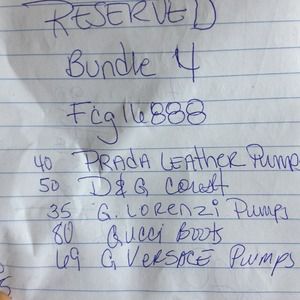 RESERVED
Bundle 4
Fcg16888
40 PRADA LEATHER Pump
50 D&G
35 G. LORENZI Pumps
80 Gucci Boots
69 G VERSACE Pumps